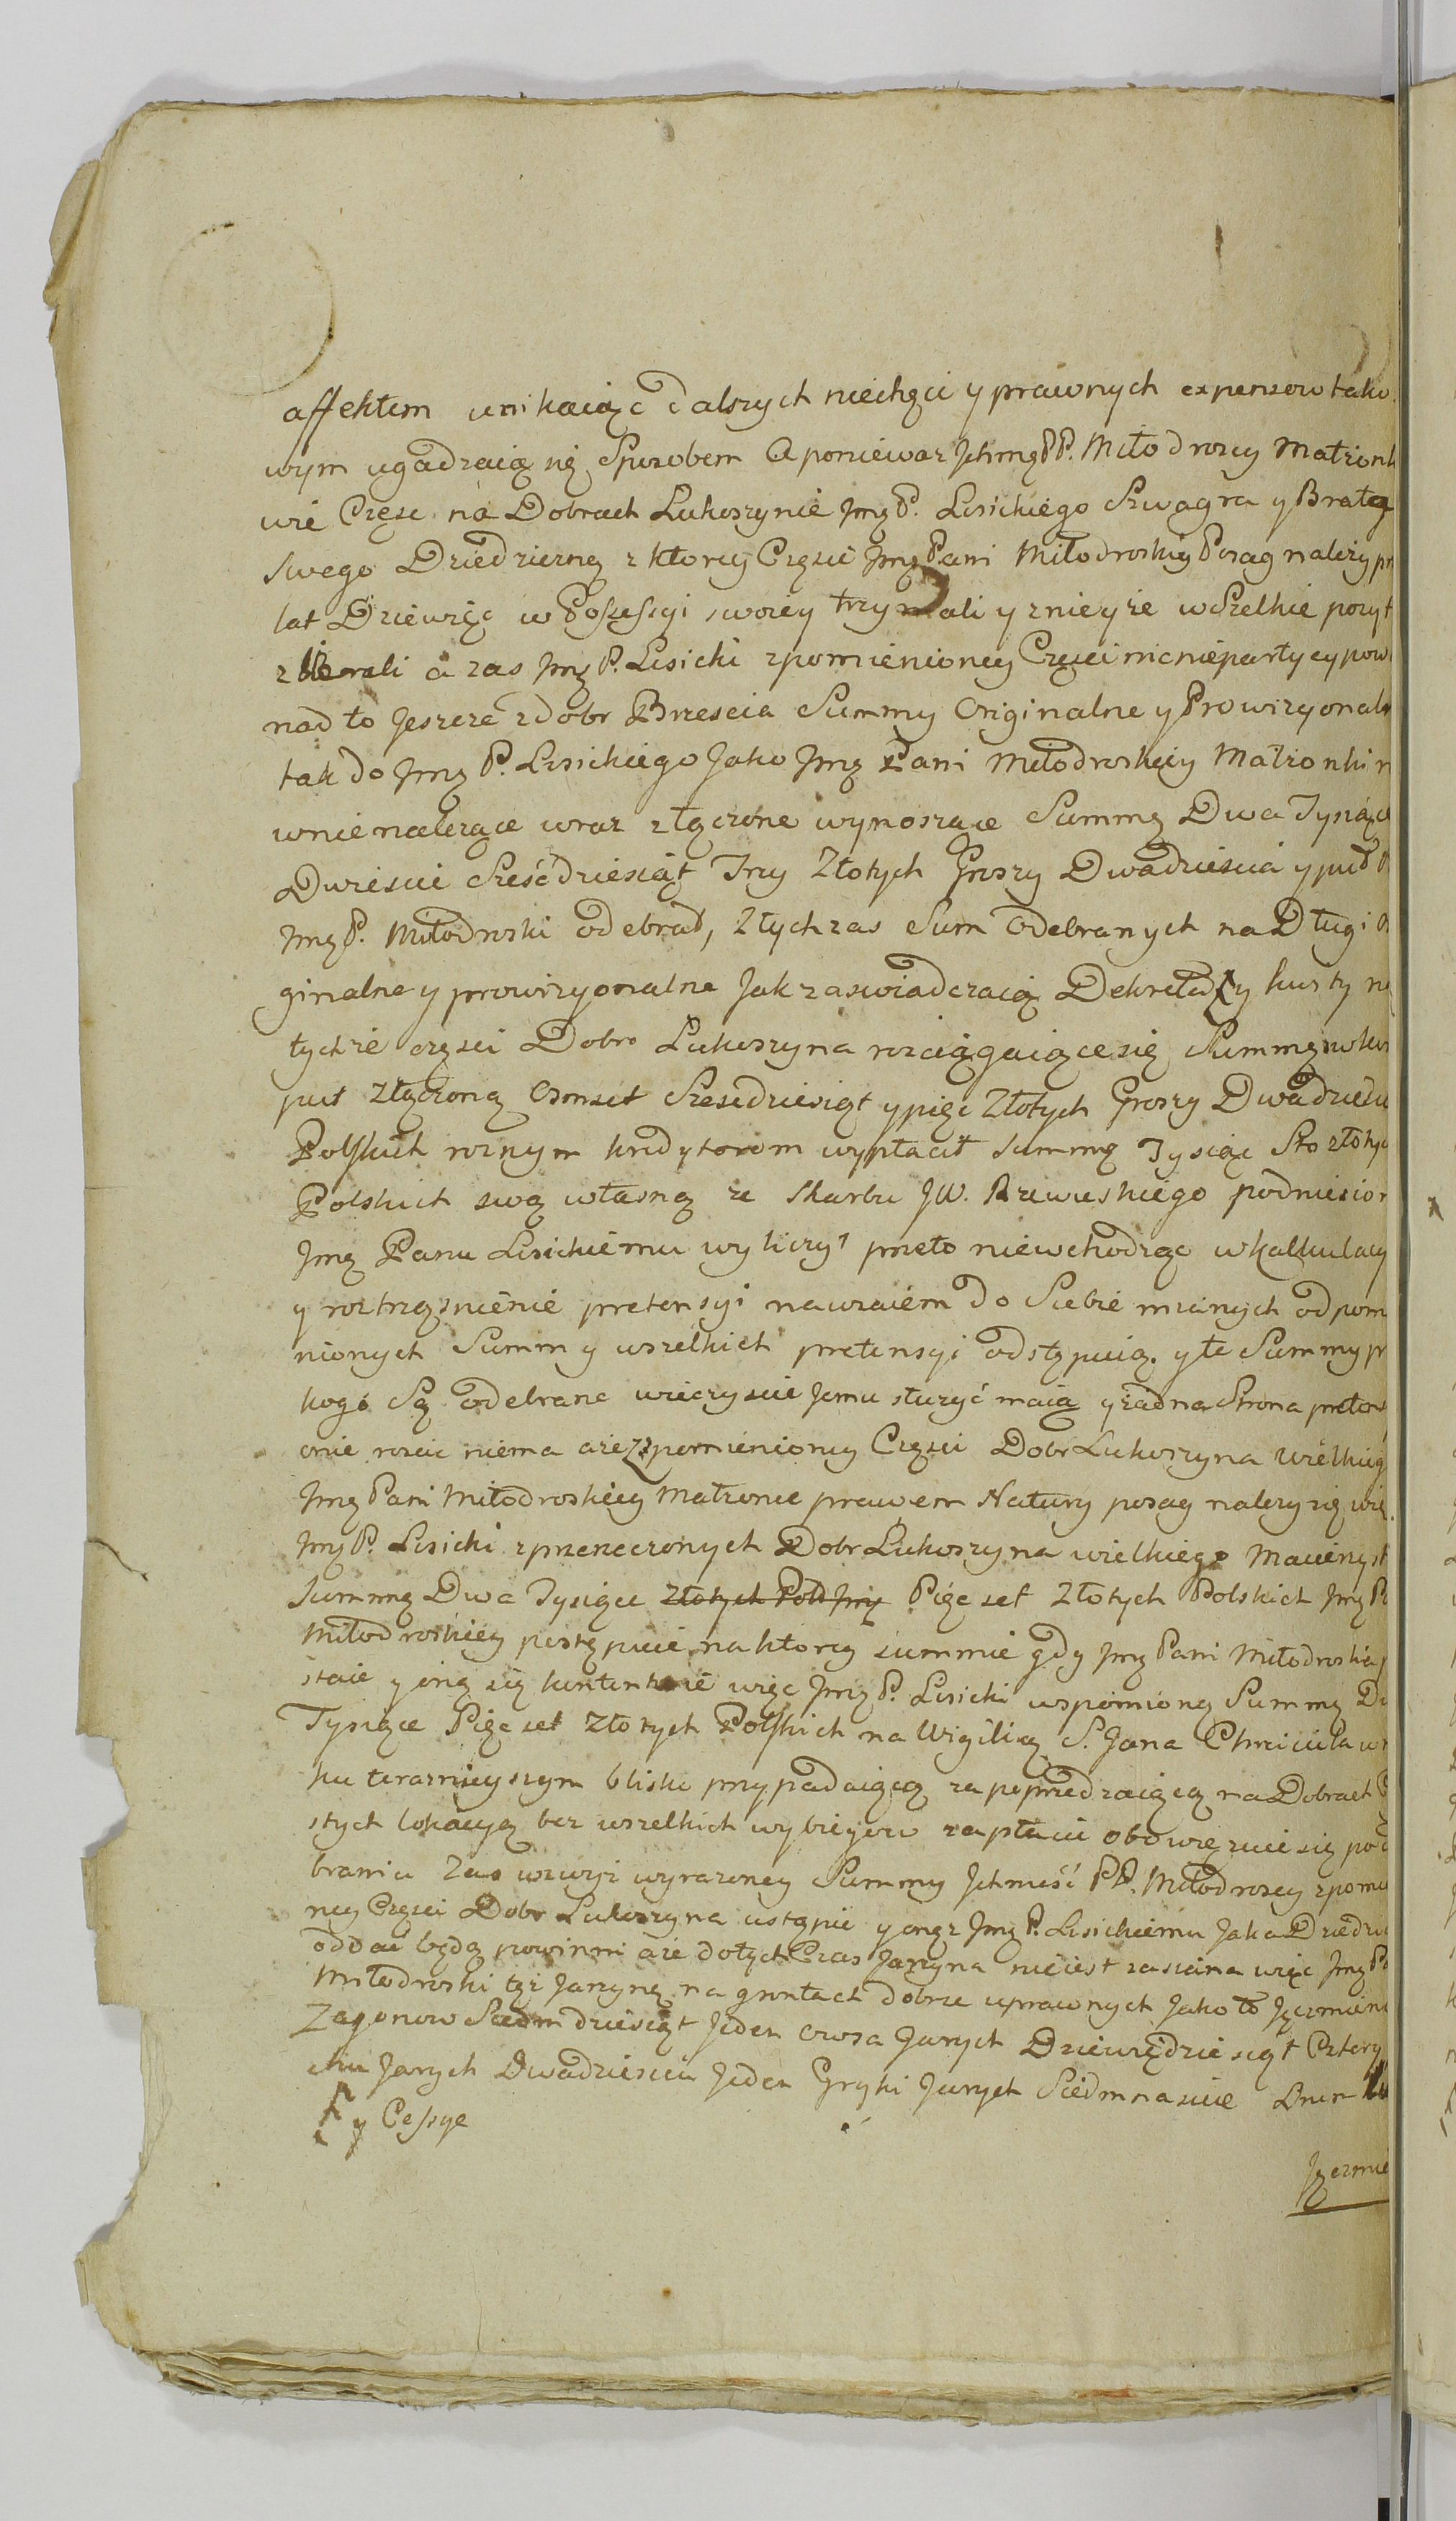 affektem unikaiąc dalszych niechęci y prawnych expensow tako
wym ugadzaią się Sposobem Aponiewaz Jchmę PP. Młodroscy Małzonk
wie Częsc na Dobrach Lukoszynie Jmę P. Lisickiego Szwagra y Brata
swego Dziedziczną z ktorey Częsci Jmę Pani Miłodroskiy Posag nalezy
lat Dziewięc w Possessyi swoiey trzymali y zniey ze wszelkie pozyt
zbierali a zas Jmę P. Lisicki zpomienioney Częsci nic niepartycypow
nad to Jeszcze zdobr Brzescia Summy Originalne y Prowizyonaln
tak do Jmę P. Lisickiego Jako Jmę Pani Miłodroskiey Małzonki
wnie nalezące wraz złączone wynoszące Summę Dwa Tysiące
Dwiescie Sześćdziesiąt Trzy Złotych Groszy Dwadziescia y puł
Jmę P. Miłodroski odebrał, Ztych zas Sum Odebranych na Długi
ginalne y prowizyonalne Jak zaswiadczaią Dekreta y kwity
tychze częsci Dobr Lukoszyna rozciągaiące się Summę wkor
pus złączoną Osmset Szescdziesiąt y pięc Złotych Groszy Dwadziesc
Polskich roznym kredytorom wypłacił summę Tysiąc Sto złotyc
Polskich swą własną ze Skarbu JW. Rzewuskiego podniesion
Jmę Panu Lisickiemu wyliczył przeto niewchodząc wkalkulacy
y roztrząsnienie pretensyi nawzaiem do Siebie mianych od pom
nionych Summ y wszelkich pretensyi odstępuią. y te Summy
kogo Są odebrane wieczyscie Jemu słuzyć maią y zadna Strona pretens
onie roscic niema a ze zpomienioney Częsci Dobr Lukoszyna Wielkieg
Jmę Pani Miłodroskiey Małzonce prawem Natury posag nalezy się
Jmę P. Lisicki zprzerzeczonych Dobr Lukoszyna wielkiego Macierzyst
Summę Dwa Tysiące Złotych Pols Jmę Pięc set Złotych Polskich Jmę P
Miłodroskiey postępuie na ktorey summie gdy Jmę Pani Miłodroska
staie y onę się kontentuie więc Jmę P. Lisicki wspomioną Summę
Tysiące Pięc set Złotych Polskich na Wigilią S. Jana Chrzciciela
ku terazniejszym blisko przypadaiącą za poprzedzaiącą na Dobrach
stych lokacyą bez wszelkich wybiegow zapłacic obowięzuie się
braniu Zas wzwyz wyrazoney Summy Jchmość PP. Miłodroscy zpomie
ney Częsci Dobr Lukoszyna ustąpic y onęz Jmę P. Lisickiemu Jako Dziedzic
oddać będą powinni a ze dotychczas Jarzyna nieiest zasiana więc Jmę P
Miłodroski tęz Jarzynę na gruntach dobrze uprawnych Jako to Jęczmieni
Zagonow Siedmdziesiąt Jeden Owsa Jarych Dziewędziesiąt Cztery
chu Jarych Dwadziescia Jeden Gryki Jarych Siedmnascie Lnu
y Cessye
Jęczmie